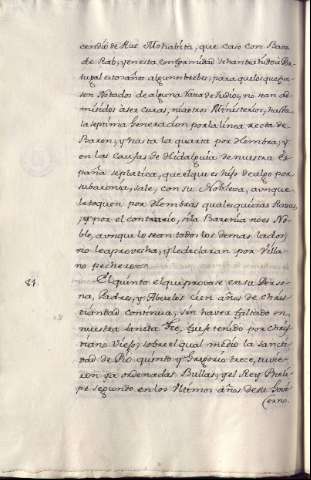 cendio de Rut Mohabita, que caso con Booz
de Rab, y en esta conformidad se han traido a Por
tugal estos años algunos brebes, para que los que fue
sen Notados de alguna Raza de Judios, no sean ad
mitidos a ser curas, ni a otros Ministerios, hasta
la septima Generacion por la linea recta de
Baron, y hasta la quarta por Hembra, y
en las Causas de Hidalguia de nuestra Es
paña se platica, que el que es hijo de algo por
su baronia, sale, con su Nobleza, aunque
le toquen por Hembras qualesquieras Razas,
y por el contrario, si la Baronia no es No
ble, aunque lo sean todos los demas lados,
no le aprovecha, y le declaran por Villa
no pechero
84. El quinto el que provase en su Perso
na, Padres, y Abuelos cien años de Chris
tiandad continua, sin haver faltado en
nuestra Sancta Fee, fuese tenido por Chris
tiano Viejo, sobre el qual medio la Santi
dad de Pio quinto y Gregorio trece, tuvie
ron ya ordenadas Bullas, y el Rey Pheli
pe segundo en los Ultimos años de su Govi
erno.